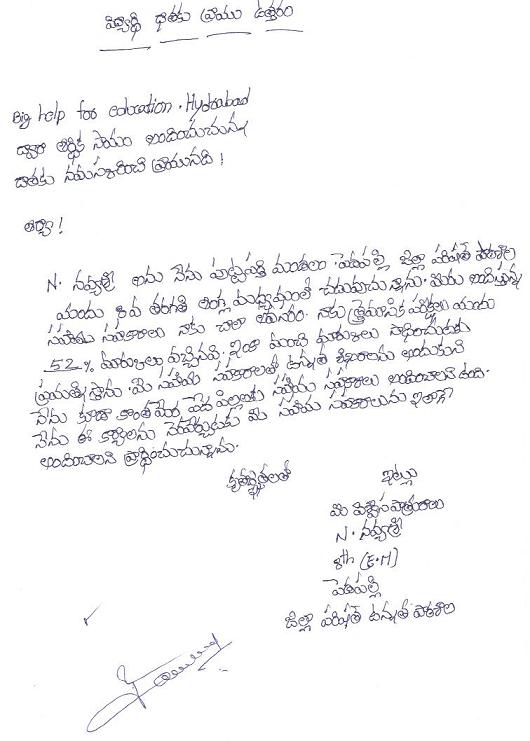 విద్యార్థి దాతకు వ్రాయు ఉత్తరం
Big help for education. Hydrabad
ద్వారా ఆర్థిక సాయం అందించుచున్న
దాతకు నమస్కరించి వ్రాయునది!
ఆర్యా!
N. నవ్యశ్రీ అను నేను పుట్టపర్తి మండలం పెడపల్లి జిల్లా పరిషత్ పాఠశాల
యందు 8వ తరగతి ఆంగ్ల మధ్యమంలో చదువుచున్నాను. మీరు అందిస్తున్న
సహాయ సహకారాలు నాకు చాలా అవసరం. నాకు త్రైమాసిక పరీక్షల యందు
52% మార్కులు వచ్చినవి. ఇంకా మంచి మార్కులు సాధించుటకు
ప్రయత్నిస్తాను. మీ సహాయ సహకారాలతో ఉన్నత శిఖరాలను అందుకుని
నేను కూడా కొంతమేర పేద పిల్లలకు సహాయ సహకారాలు అందించాలని ఉంది.
నేను ఈ కార్యాలను నెరవేర్చుటకు మీ సహాయ సహకారాలును ఇలాగే
అందించాలని ప్రార్థించుచున్నాను.
కృతజ్ఞతలతో
ఇట్లు
మీ విశ్వాసపాత్రురాలు
N. నవ్యశ్రీ
8th (E.M)
పెడపల్లి
జిల్లా పరిషత్ ఉన్నత పాఠశాల